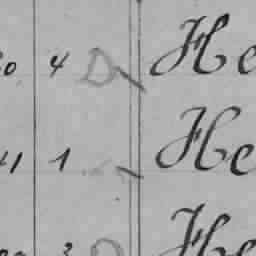 0 4 D He
41 1 He
He